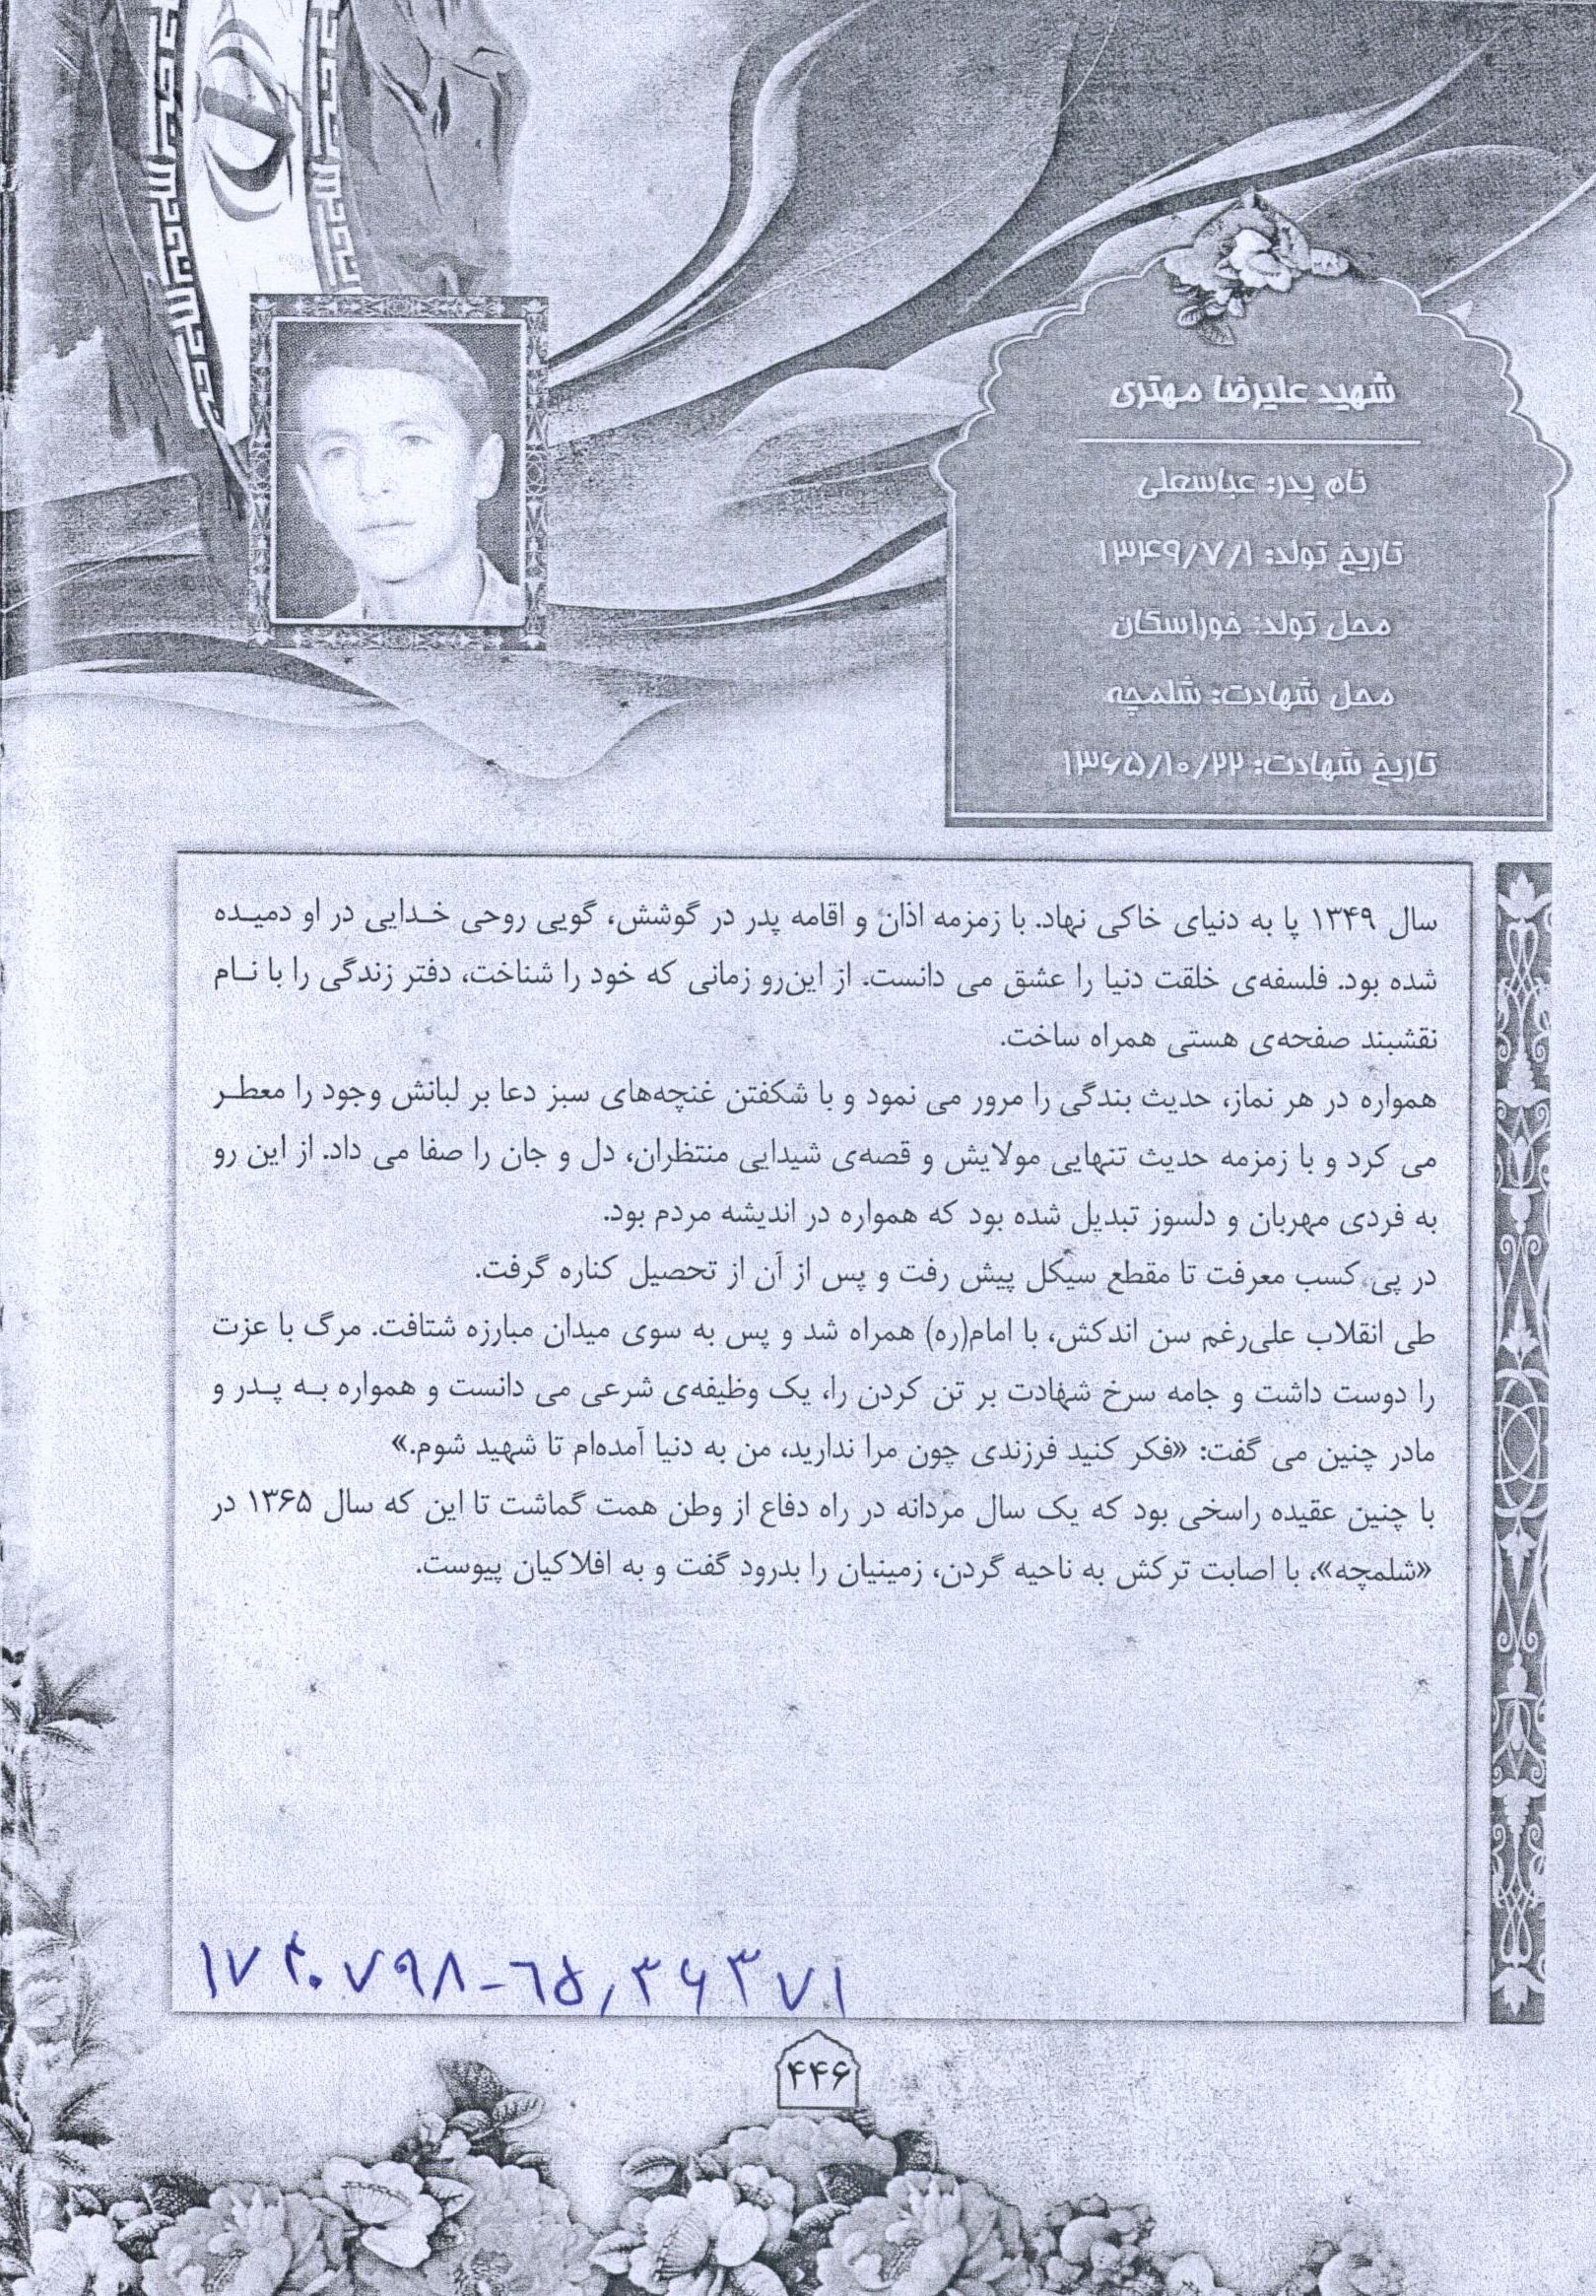 شهید علیرضا مهتری
نام پدر: عباسعلی
تاریخ تولد: ۱۳۴۹/۷/۱
محل تولد: خوراسگان
محل شهادت: شلمچه
تاریخ شهادت: ۱۳۶۵/۱۰/۲۲
سال ۱۳۴۹ پا به دنیای خاکی نهاد. با زمزمه اذان و اقامه پدر در گوشش، گویی روحی خدایی در او دمیده
شده بود. فلسفه‌ی خلقت دنیا را عشق می دانست. از این‌رو زمانی که خود را شناخت، دفتر زندگی را با نام
نقشبند صفحه‌ی هستی همراه ساخت.
همواره در هر نماز، حدیث بندگی را مرور می نمود و با شکفتن غنچه‌های سبز دعا بر لبانش وجود را معطر
می کرد و با زمزمه حدیث تنهایی مولایش و قصه‌ی شیدایی منتظران، دل و جان را صفا می داد. از این رو
به فردی مهربان و دلسوز تبدیل شده بود که همواره در اندیشه مردم بود.
در پی کسب معرفت تا مقطع سیکل پیش رفت و پس از آن از تحصیل کناره گرفت.
طی انقلاب علی‌رغم سن اندکش، با امام(ره) همراه شد و پس به سوی میدان مبارزه شتافت. مرگ با عزت
را دوست داشت و جامه سرخ شهادت بر تن کردن را، یک وظیفه‌ی شرعی می دانست و همواره به پدر و
مادر چنین می گفت: «فکر کنید فرزندی چون مرا ندارید، من به دنیا آمده‌ام تا شهید شوم.»
با چنین عقیده راسخی بود که یک سال مردانه در راه دفاع از وطن همت گماشت تا این که سال ۱۳۶۵ در
«شلمچه»، با اصابت ترکش به ناحیه گردن، زمینیان را بدرود گفت و به افلاکیان پیوست.
۴۴۶